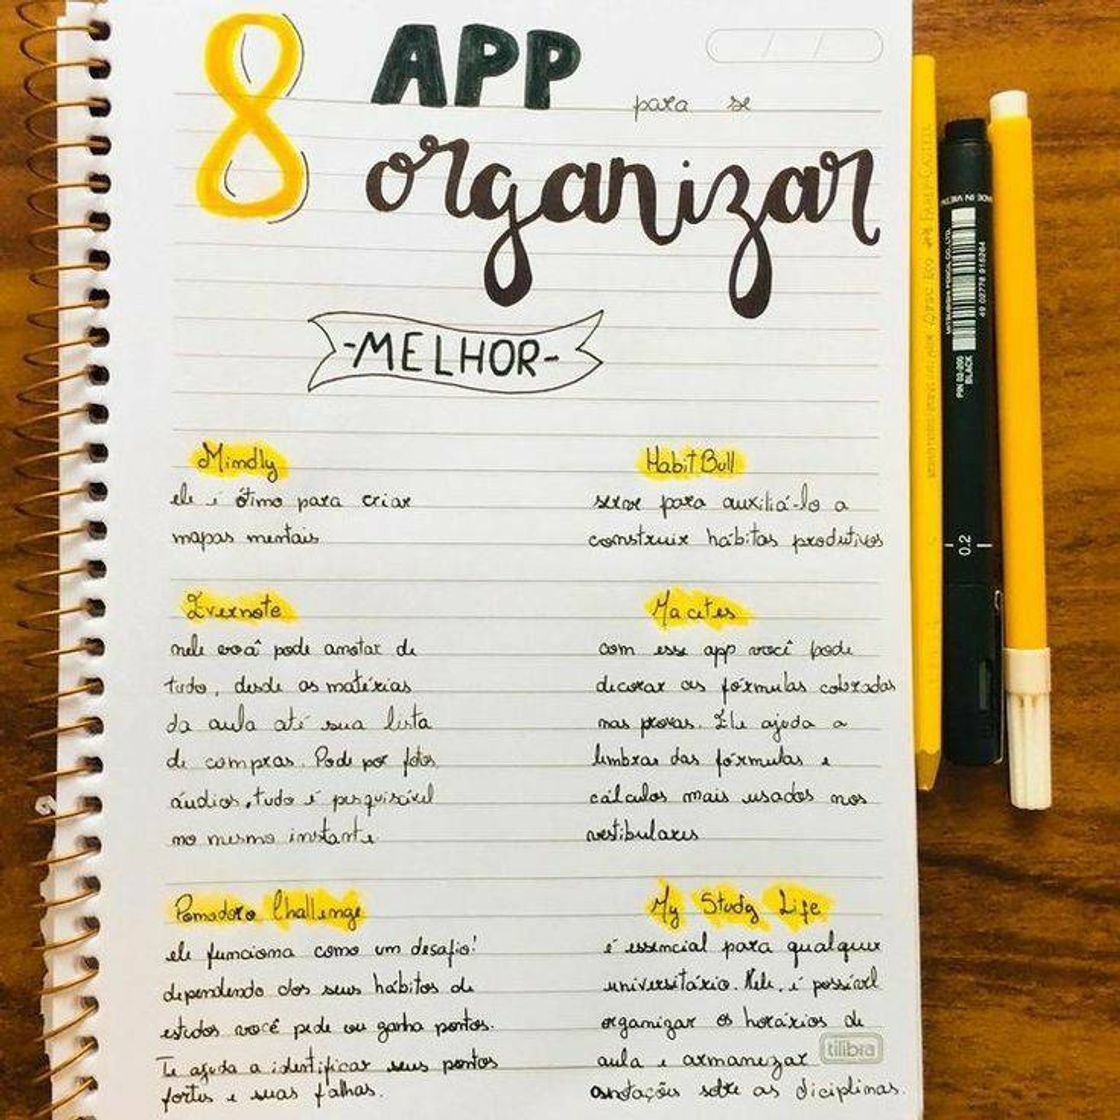 8 APP para se
organizar
-MELHOR-
Mindly
ele é ótimo para criar
mapas mentais
HabitBull
serve para auxiliá-lo a
construir hábitos produtivos
Evernote
nele você pode anotar de
tudo, desde as matérias
da aula até sua lista
de compras. Pode por fotos,
áudios, tudo é pesquisável
no mesmo instante.
Macetes
com esse app você pode
decorar as fórmulas cobradas
nas provas. Ele ajuda a
lembrar das fórmulas e
cálculos mais usados nos
vestibulares
Pomodoro Challenge
ele funciona como um desafio!
dependendo dos seus hábitos de
estudos você pede ou ganha pontos.
Te ajuda a identificar seus pontos
fortes e suas falhas.
My Study Life
é essencial para qualquer
universitário. Nele, é possível
organizar os horários de
aula e armanezar
anotações sobre as diciplinas.
tilibra
MADE IN
MITSUBISHI PENCIL CO., LTD.
4902778915264
PIN 02-200
BLACK
0.2